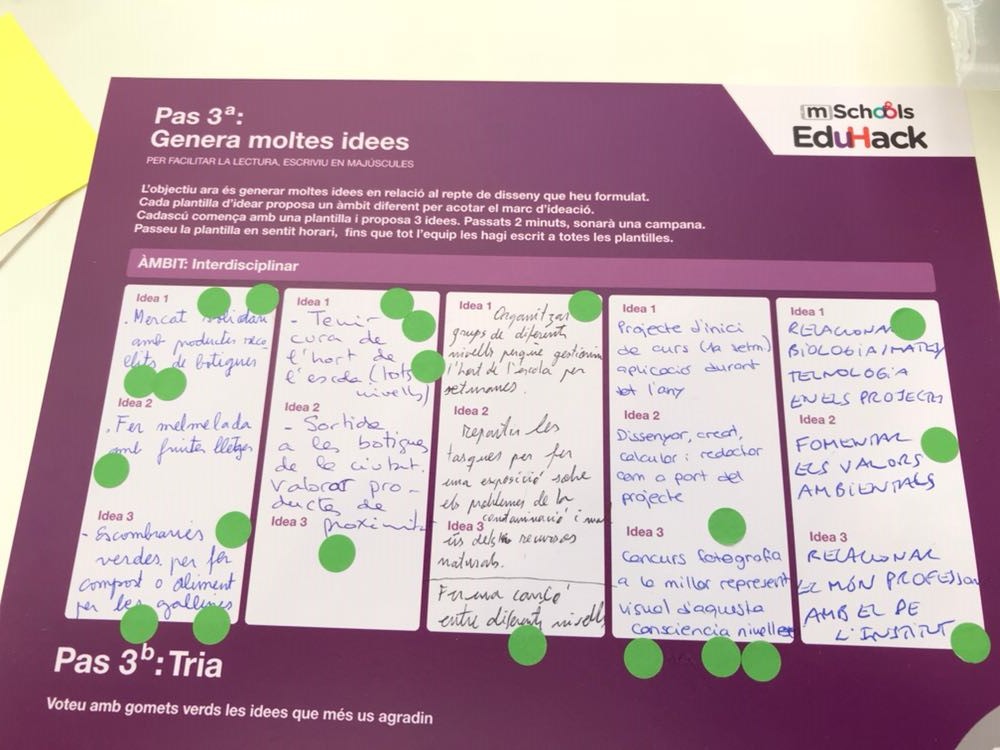 Pas 3ª:
Genera moltes idees
PER FACILITAR LA LECTURA, ESCRIVIU EN MAJÚSCULES
mSchools
EduHack
L'objectiu ara és generar moltes idees en relació al repte de disseny que heu formulat.
Cada plantilla d'idear proposa un àmbit diferent per acotar el marc d'ideació.
Cadascú comença amb una plantilla i proposa 3 idees. Passats 2 minuts, sonarà una campana.
Passeu la plantilla en sentit horari, fins que tot l'equip les hagi escrit a totes les plantilles.
ÀMBIT: Interdisciplinar
Idea 1
. Mercat solidari
amb productes
de botigues
Idea 2
. Fer melmelada
amb fruites lletges
Idea 3
- Escombraries
verdes per fer
compost o aliment
per les gallines
Idea 1
- Tenir
cura de
l'hort de
l'escola (tots
nivells)
Idea 2
- Sortida
a les botigues
de la ciutat.
Valorar pro-
ductes de
Idea 3
proximitat
Idea 1
Organitzar
grups de diferents
nivells perquè gestionin
l'hort de l'escola per
setmanes.
Idea 2
Repartir les
tasques per fer
una exposició sobre
els problemes de la
contaminació i mal
Idea 3
ús dels recursos
naturals.
Fer una cançó
entre diferents nivells
Idea 1
Projecte d'inici
de curs (1a setm.)
aplicació durant
tot l'any
Idea 2
Dissenyar, creat,
calcular i redactor
com a part del
projecte
Idea 3
Concurs fotografia
a la millor represent
visual d'aquesta
consciència nivells
Idea 1
RELACIONAR
BIOLOGIA/MATES/
TECNOLOGIA
EN ELS PROJECTES
Idea 2
FOMENTAR
ELS VALORS
AMBIENTALS
Idea 3
RELACIONAR
EL MÓN PROFESSIONAL
AMB EL DE
L'INSTITUT
Pas 3b: Tria
Voteu amb gomets verds les idees que més us agradin